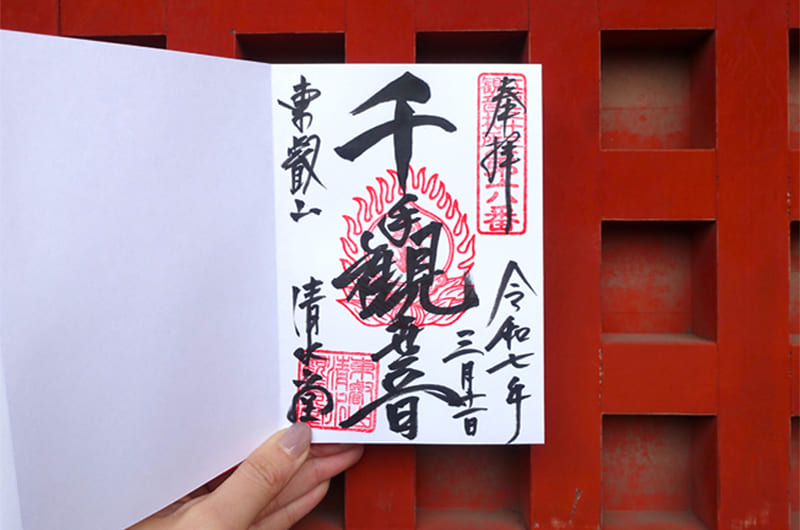 奉拝
令和七年
三月十一日
千手観世音
東叡山
清水堂